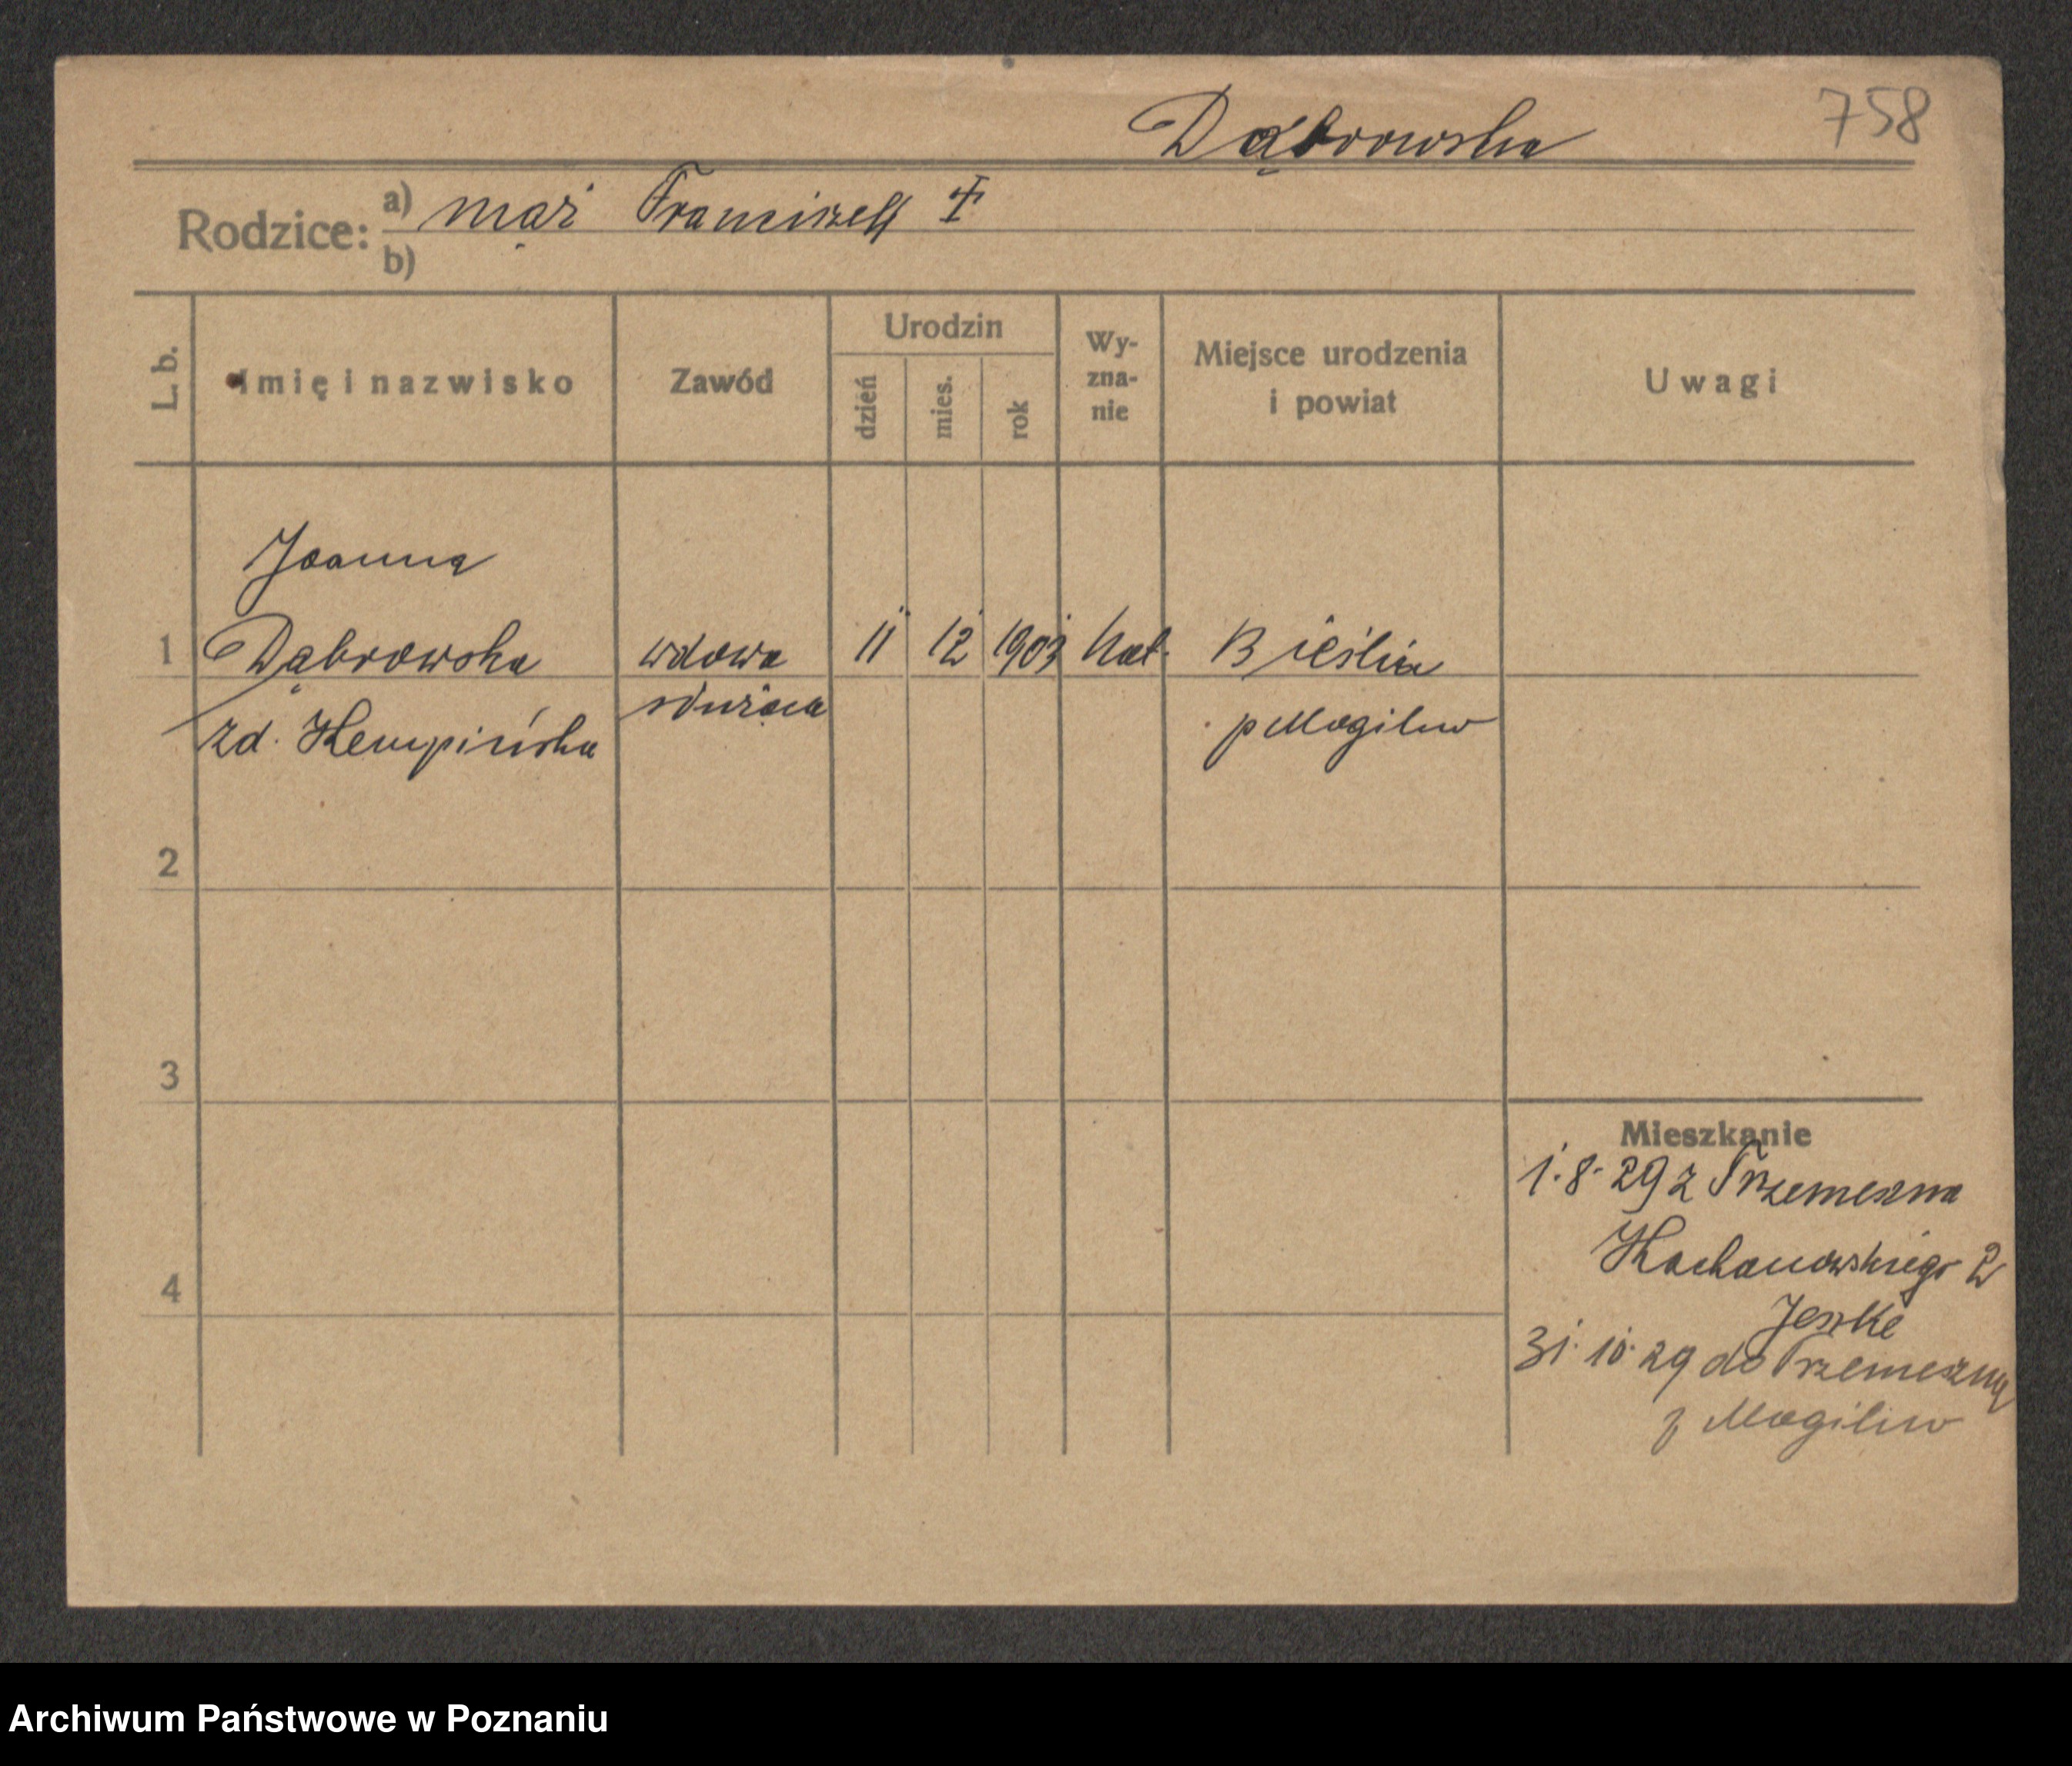 758
Dąbrowska
Rodzice: a) mąż Franciszek ✝
b)
L. b. Imię i nazwisko Zawód Urodzin dzień mies. rok Wy-zna-nie Miejsce urodzenia i powiat Uwagi
Joanna
1 Dąbrowska wdowa 11 12 1903 kat. Bieślin
zd. Kempińska służąca p Mogilno
2
3
4
Mieszkanie
1.8.29 z Trzemeszna
Kochanowskiego 2
Jeszke
31.10.29 do Trzemeszna
p Mogilno
Archiwum Państwowe w Poznaniu